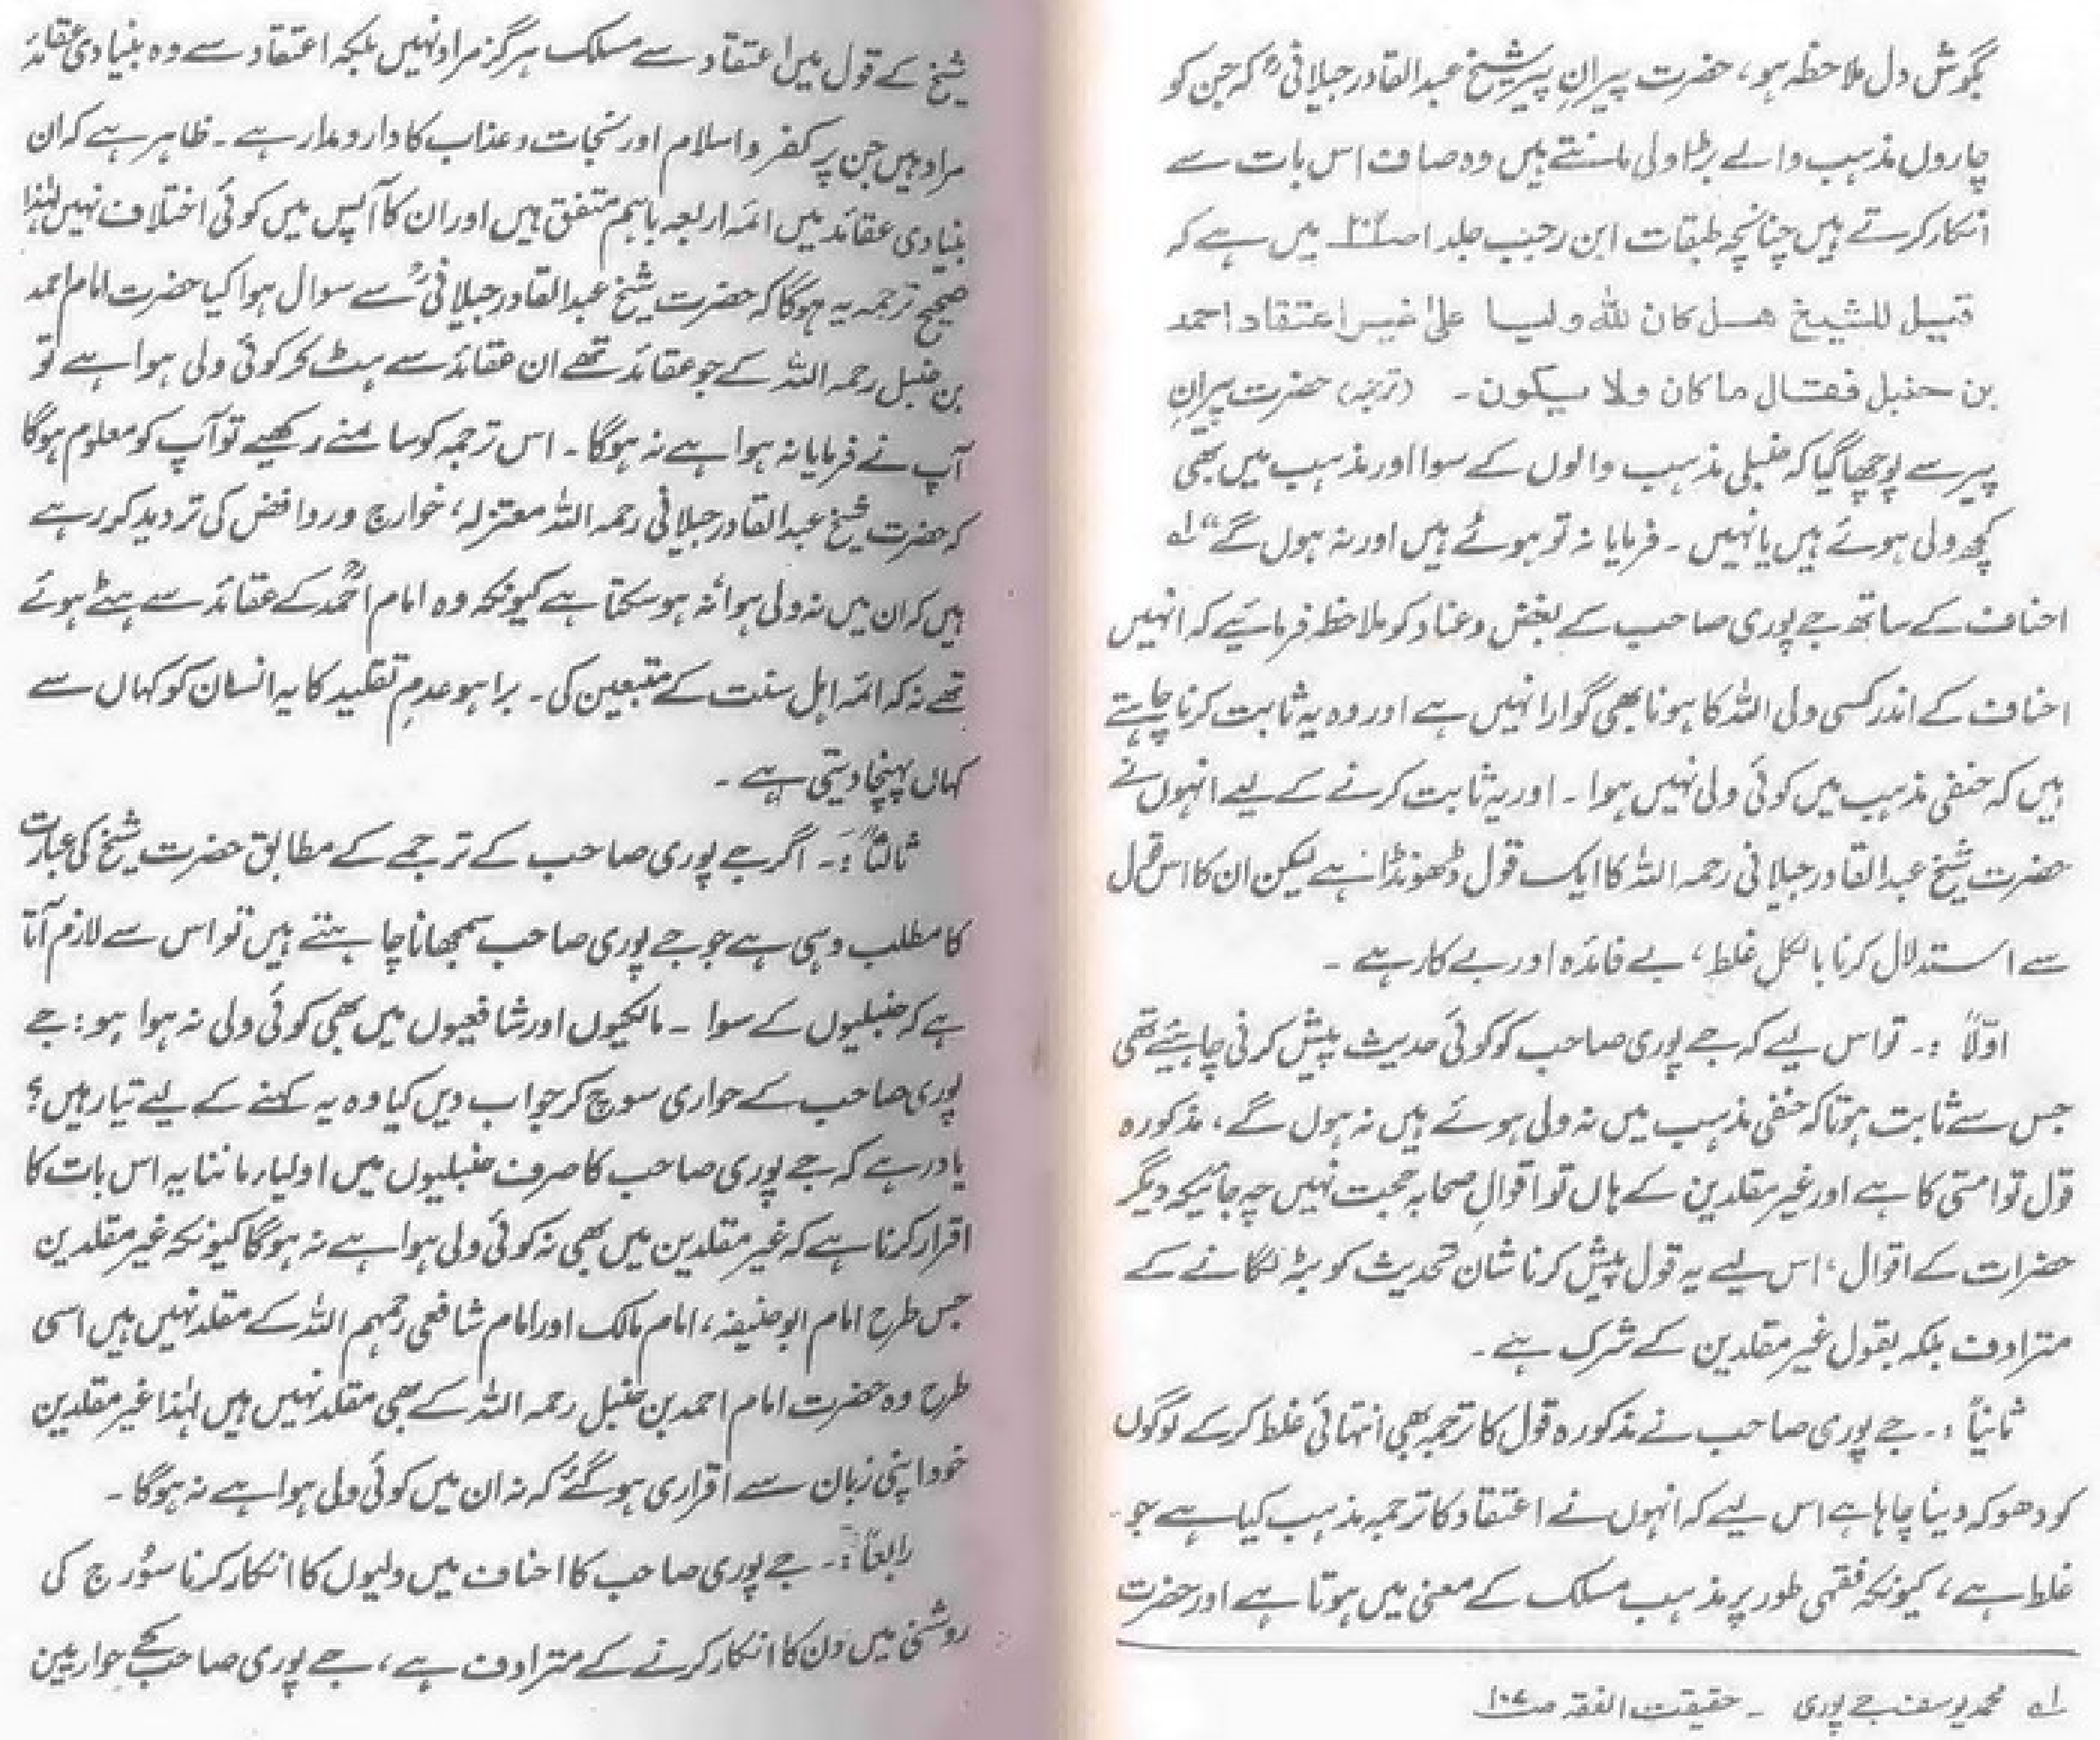 بگوش دل ملاحظہ ہو، حضرت پیرانِ پیر شیخ عبدالقادر جیلانیؒ کہ جن کو
چاروں مذہب والے بڑا ولی مانتے ہیں وہ صاف اس بات سے
انکار کرتے ہیں چنانچہ طبقات ابن رجب جلد ا ص۲۰۲ میں ہے کہ
قیل للشیخ ھل کان للہ ولیا علیٰ غیر اعتقاد احمد
بن حنبل فقال ما کان ولا یکون۔ (ترجمہ) حضرت پیرانِ
پیر سے پوچھا گیا کہ حنبلی مذہب والوں کے سوا اور مذہب میں بھی
کچھ ولی ہوئے ہیں یا نہیں۔ فرمایا نہ تو ہوئے ہیں اور نہ ہوں گے“ ؎۱
احناف کے ساتھ جے پوری صاحب کے بغض و عناد کو ملاحظہ فرمائیے کہ انہیں
احناف کے اندر کسی ولی اللہ کا ہونا بھی گوارا نہیں ہے اور وہ یہ ثابت کرنا چاہتے
ہیں کہ حنفی مذہب میں کوئی ولی نہیں ہوا۔ اور یہ ثابت کرنے کے لیے انہوں نے
حضرت شیخ عبدالقادر جیلانی رحمہ اللہ کا ایک قول ڈھونڈا ہے لیکن ان کا اس قول
سے استدلال کرنا بالکل غلط، بے فائدہ اور بے کار ہے۔
اوّلاً :۔ تو اس لیے کہ جے پوری صاحب کو کوئی حدیث پیش کرنی چاہئے تھی
جس سے ثابت ہوتا کہ حنفی مذہب میں نہ ولی ہوئے ہیں نہ ہوں گے، مذکورہ
قول تو امتی کا ہے اور غیر مقلدین کے ہاں تو اقوالِ صحابہ حجت نہیں چہ جائیکہ دیگر
حضرات کے اقوال، اس لیے یہ قول پیش کرنا شان تحدیث کو بٹہ لگانے کے
مترادف بلکہ بقول غیر مقلدین کے شرک ہے۔
ثانیاً :۔ جے پوری صاحب نے مذکورہ قول کا ترجمہ بھی انتہائی غلط کر کے لوگوں
کو دھوکہ دینا چاہا ہے اس لیے کہ انہوں نے اعتقاد کا ترجمہ مذہب کیا ہے جو
غلط ہے، کیونکہ فقہی طور پر مذہب مسلک کے معنی میں ہوتا ہے اور حضرت
؎۱ محمد یوسف جے پوری ۔ حقیقت الفقہ ص۱۰۷
شیخ کے قول میں اعتقاد سے مسلک ہرگز مراد نہیں بلکہ اعتقاد سے وہ بنیادی عقائد
مراد ہیں جن پر کفر و اسلام اور نجات و عذاب کا دارومدار ہے۔ ظاہر ہے کہ ان
بنیادی عقائد میں ائمہ اربعہ باہم متفق ہیں اور ان کا آپس میں کوئی اختلاف نہیں لہٰذا
صحیح ترجمہ یہ ہوگا کہ حضرت شیخ عبدالقادر جیلانیؒ سے سوال ہوا کیا حضرت امام احمد
بن حنبل رحمہ اللہ کے جو عقائد تھے ان عقائد سے ہٹ کر کوئی ولی ہوا ہے تو
آپ نے فرمایا نہ ہوا ہے نہ ہوگا۔ اس ترجمہ کو سامنے رکھیے تو آپ کو معلوم ہوگا
کہ حضرت شیخ عبدالقادر جیلانی رحمہ اللہ معتزلہ، خوارج و روافض کی تردید کر رہے
ہیں کہ ان میں نہ ولی ہوا نہ ہو سکتا ہے کیونکہ وہ امام احمدؒ کے عقائد سے ہٹے ہوئے
تھے نہ کہ ائمہ اہل سنت کے متبعین کی۔ برا ہو عدمِ تقلید کا یہ انسان کو کہاں سے
کہاں پہنچا دیتی ہے۔
ثالثاً :۔ اگر جے پوری صاحب کے ترجمے کے مطابق حضرت شیخ کی عبارت
کا مطلب وہی ہے جو جے پوری صاحب سمجھانا چاہتے ہیں تو اس سے لازم آتا
ہے کہ حنبلیوں کے سوا۔ مالکیوں اور شافعیوں میں بھی کوئی ولی نہ ہوا ہو: جے
پوری صاحب کے حواری سوچ کر جواب دیں کیا وہ یہ کہنے کے لیے تیار ہیں؟
یاد رہے کہ جے پوری صاحب کا صرف حنبلیوں میں اولیاء ماننا یہ اس بات کا
اقرار کرنا ہے کہ غیر مقلدین میں بھی نہ کوئی ولی ہوا ہے نہ ہوگا کیونکہ غیر مقلدین
جس طرح امام ابوحنیفہ، امام مالک اور امام شافعی رحمہم اللہ کے مقلد نہیں ہیں اسی
طرح وہ حضرت امام احمد بن حنبل رحمہ اللہ کے بھی مقلد نہیں ہیں لہٰذا غیر مقلدین
خود اپنی زبان سے اقراری ہوگئے کہ نہ ان میں کوئی ولی ہوا ہے نہ ہوگا۔
رابعاً :۔ جے پوری صاحب کا احناف میں ولیوں کا انکار کرنا سورج کی
روشنی میں دن کا انکار کرنے کے مترادف ہے، جے پوری صاحب کے حواریین